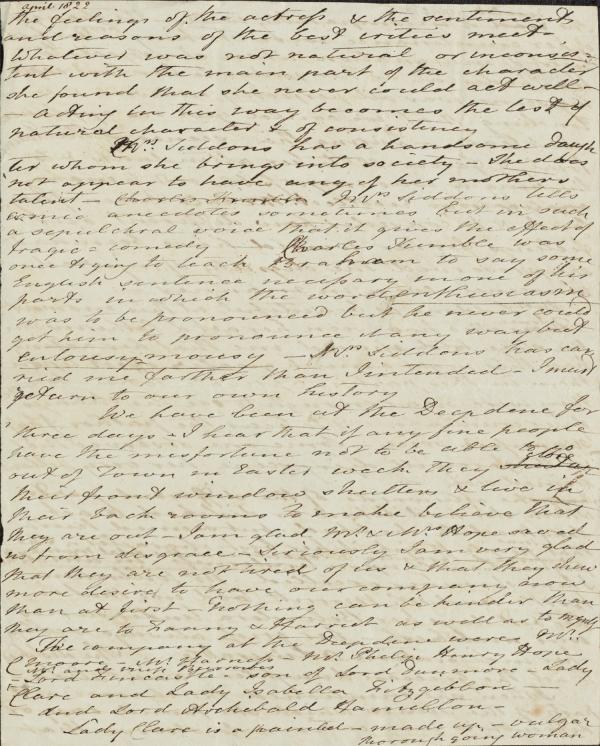 april 1822
the feelings of the actress & the sentiments
and reasons of the best critics meet –
Whatever was not natural or inconsis=
tent with the main part of the character
she found that she never could act well –
– acting in this way becomes the test of
natural character & of consistency
Mrs. Siddons has a handsome daugh
ter whom she brings into society – She does
not appear to have any of her mothers
talent – Charles Kemble Mrs Siddons tells
comic anecdotes sometimes but in such
a sepulchral voice that it gives the effect of
tragic = comedy – Charles Kemble was
once trying to teach Braham to say some
English sentence necessary in one of his
parts in which the word enthusiasm
was to be pronounced but he never could
get him to pronounce it any way but
enlousymousy – Mrs. Siddons has car
ried me farther than I intended – I must
return to our own history
We have been at the Deepdene for
three days – I hear that if any fine people
have the misfortune not to be able to go
out of Town in Easter week they close
their front window shutters & live in
their back rooms to make believe that
they are out – I am glad Mr. & Mrs Hope saved
us from disgrace – Seriously I am very glad
that they are not tired of us & that they shew
more desire to have our company now
than at first – Nothing can be kinder than
they are to Fanny & Harriet as well as to myself
The company at the Deepdene were Mr.
C Moore – Mr Harness – Mr. Philip Henry Hope
– Lord Fincastle – son of Lord Dunmore – Lady
Clare and Lady Isabella Fitzgibbon –
– and Lord Archibald Hamilton –
Lady Clare is a painted – made up – vulgar
thorough going woman